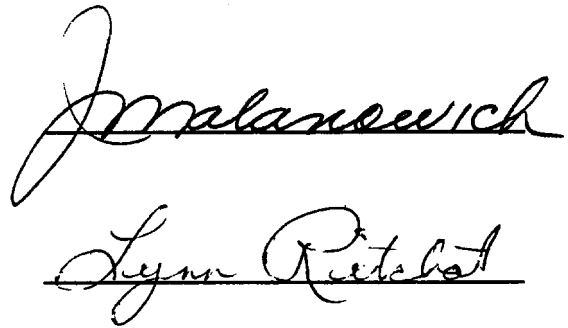 J Malanowich
Lynn Rietchot